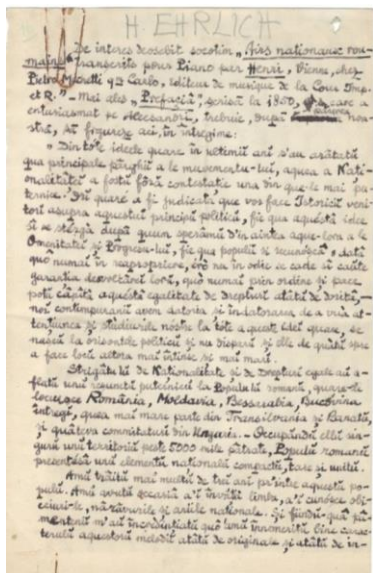 H. EHRLICH
De interes deosebit socotim „Airs nationaux rou-
mains" transcrits pour Piano par Henri, Vienne, chez
Pietro Mechetti qd Carlo, éditeur de musique de la Cour Imp.
et R." — mai ales „Prefaţa", scrisă la 1850, care a
entusiasmat pe Alecsandri, trebuie, după părerea noa-
stră, să figureze aci, în întregime:
„Din tóte ideele quare în ultimii ani s'au arătatŭ
qua principale pârghiĭ a le muvementu-luĭ, aquea a Naţi-
onalităţeĭ a fostŭ fără contestaţie una din que-le maĭ pu-
ternice. Orĭ quare a fi judicata que vor face Istoriciĭ veni-
torĭ asupra aquestuĭ principiŭ politicŭ, fie qua aquéstă idee
să se sténgă după quum sperămŭ d'in aintea aque-lora a le
Omenităţeĭ şi Progresu-luĭ, fie qua populiĭ să recunóscă odată
quŏ numai în reapropriere, éră nu în osire se cade să caute
garanţia desvoltăreĭ lorŭ, quŏ numaĭ prin ordine şi pace
potŭ căpăta aquéstă egalitate de drepturĭ atâtŭ de dorită,—
noĭ contimpuraniĭ avem datoria şi îndatorarea de a
tenţiunea şi studiurile nóstre la tóte aqueste ideĭ quare, se
nascŭ la orisontele politicŭ şi nu disparŭ şi elle de quâtŭ spre
a face locŭ altora maĭ întinse şi maĭ marĭ.
Strigătulŭ de Naţionalitate şi de Drepturĭ egale aŭ a-
flatŭ unŭ resunetŭ puternicŭ la Populŭ românŭ, quare-le
locuesce România, Moldavia, Bessarabia, Bucovina
întregĭ, quea maĭ mare parte din Transilvania şi Banatŭ,
şi quâteva comitaturĭ din Ungaria. — Ocupândŭ ellŭ sin-
gurŭ unŭ territoriŭ peste 5000 mile pătrate, Populŭ românŭ
presentésă unŭ elementŭ naţionalŭ compactŭ, tare şi multŭ.
Amŭ trăitŭ maĭ multŭ de treĭ anĭ printre aquestŭ po-
pulŭ. Amŭ avutŭ ocasia a'ĭ învăţa limba, a'ĭ cunósce obi-
ceiurĭ-le, năravurile şi artile naţionale. Şi fiindŭ-quă
m'aŭ încredinţatŭ quă lumĭ înnomerită bine carac-
terulŭ aquestorŭ melodiĭ atâtŭ de originale şi atâtŭ de in-